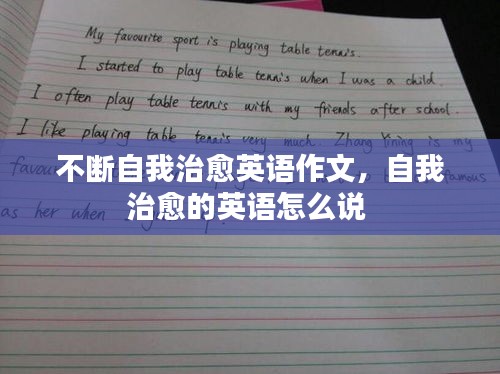 My favourite sport is playing table tennis.
I started to play table tennis when I was a child.
I often play table tennis with my friends after school.
I like playing table tennis very much. Zhang Yining is my
favou
不断自我治愈英语作文，自我
治愈的英语怎么说
famous
as her when